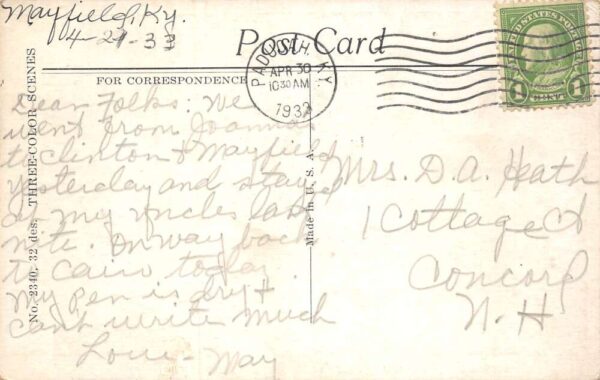 Mayfield, Ky.
4-29-33
Post Card
FOR CORRESPONDENCE
PADUCAH, KY.
APR 30
1030AM
1933
UNITED STATES POSTAGE
1 CENT 1
No. 2340. 32 des. THREE-COLOR SCENES
Made in U. S. A.
Dear Folks: We
went from Joanna
to Clinton & Mayfield
yesterday and stayed
at my uncles last
nite. On way back
to Cairo today.
My pen is dry &
cant write much
Love - May
Mrs. D. A. Heath
1 Cottage Ct
Concord
N. H